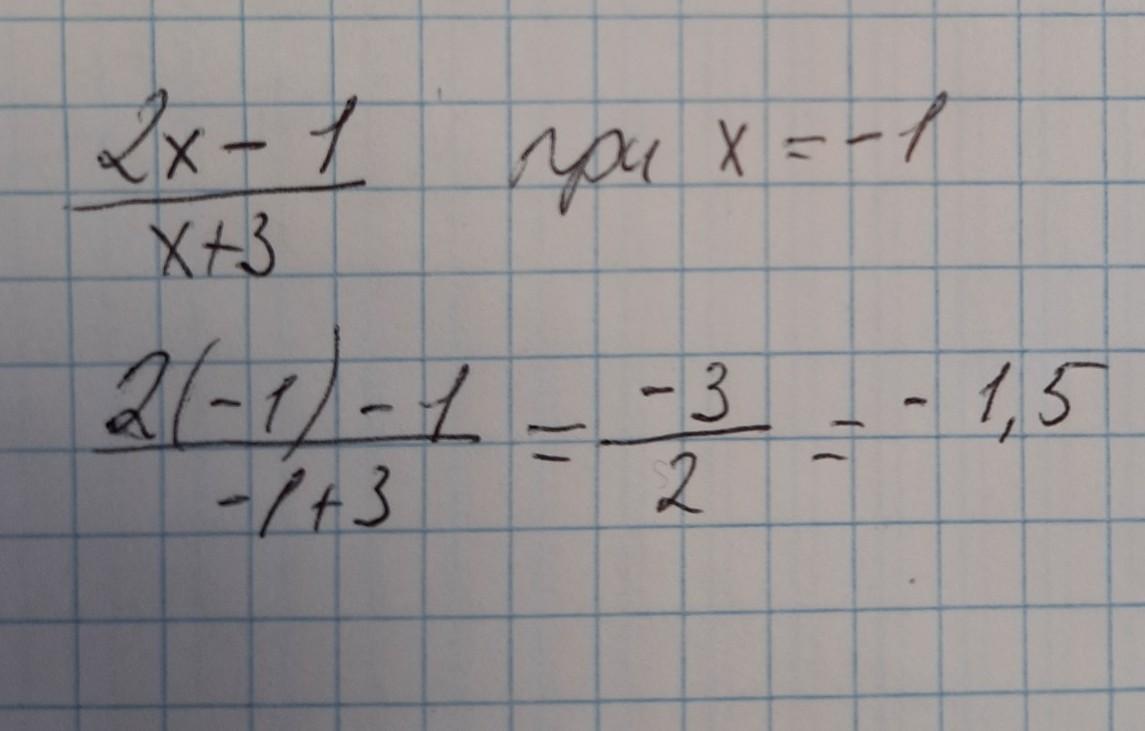 2x - 1 при x = -1
x+3
2(-1) - 1 = -3 = - 1,5
-1+3 2